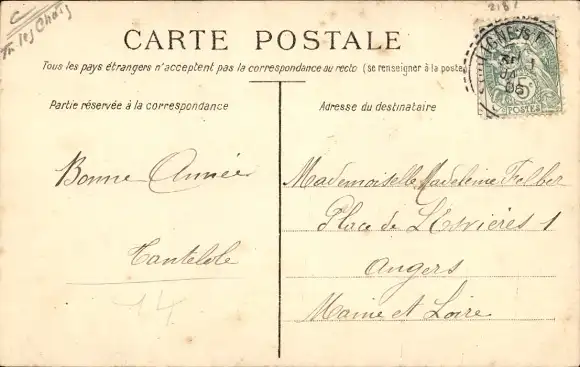 CARTE POSTALE
Tous les pays étrangers n'acceptent pas la correspondance au recto (se renseigner à la poste)
Partie réservée à la correspondance
Adresse du destinataire
Bonne Année
Mademoiselle Madeleine
Place de L'Esvières 1
Angers
Maine et Loire
14
5
POSTES